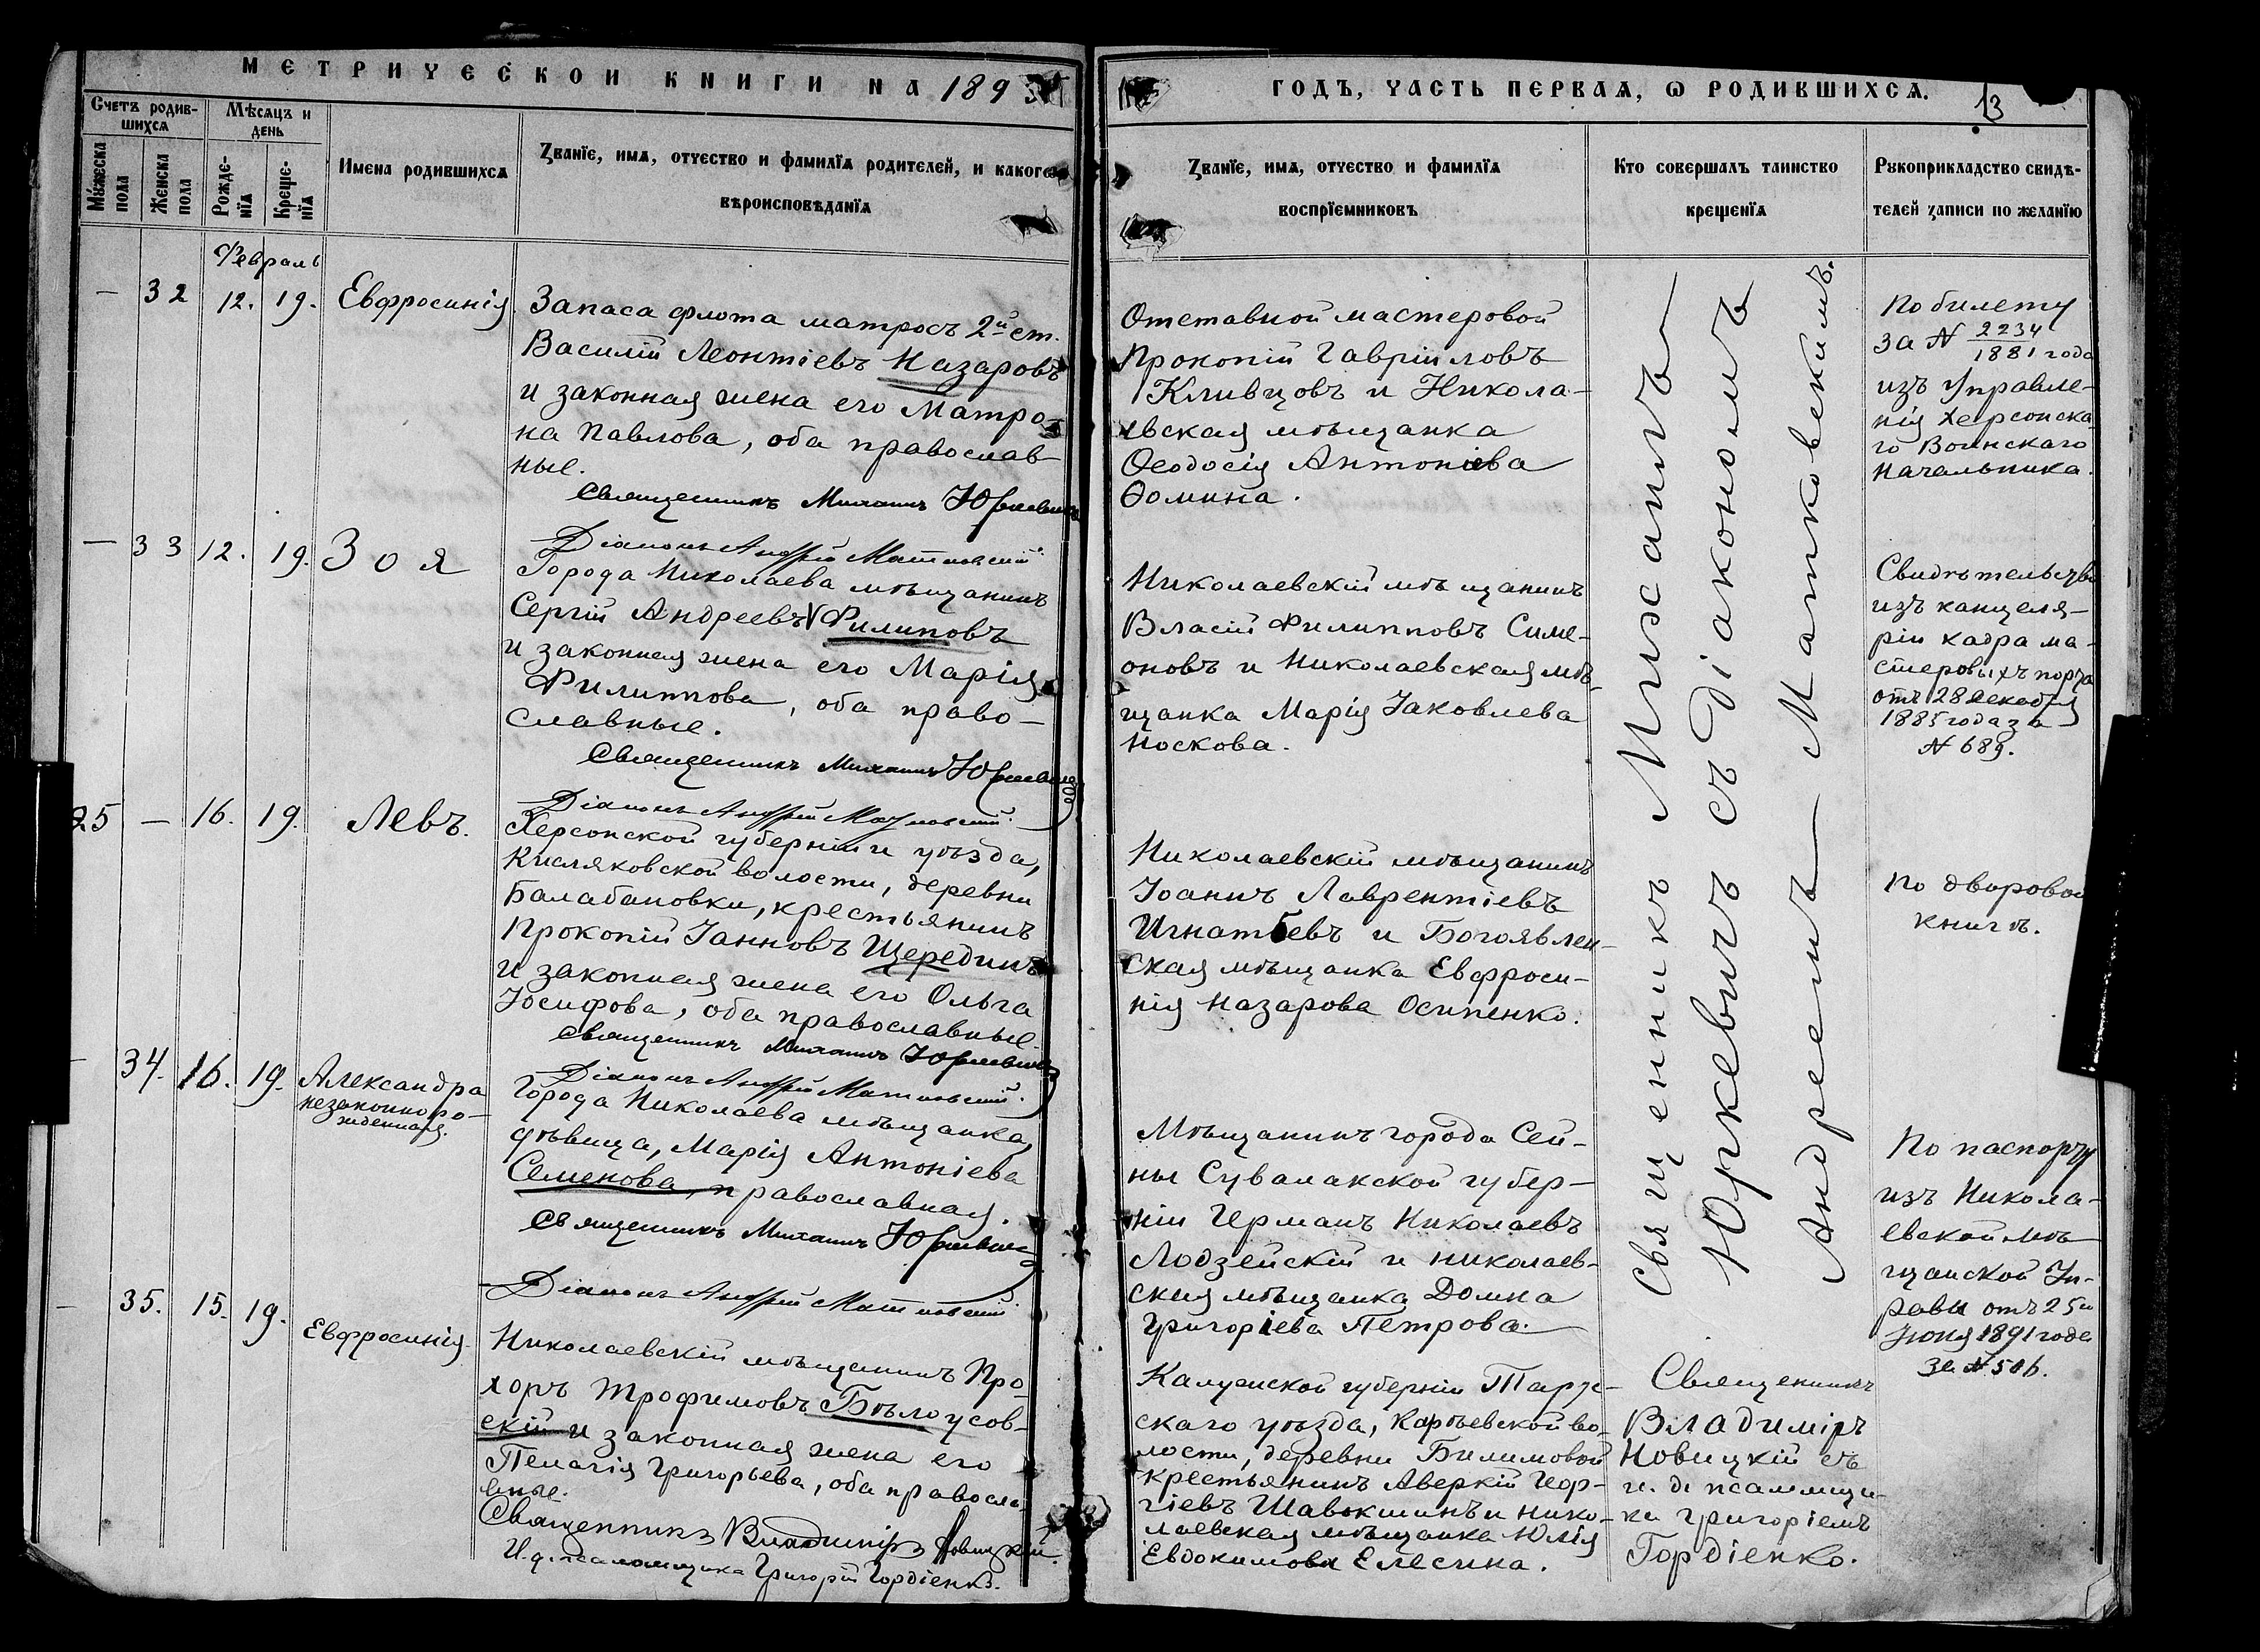 МЕТРИЧЕСКОЙ КНИГИ НА 189
ГОДЪ, ЧАСТЬ ПЕРВАЯ, Ѡ РОДИВШИХСЯ.
13
Счетъ родив-
шихся
Мѣсяцъ и
день
Мужеска
пола
Женска
пола
Рожде-
нїя
Креще-
нїя
Имена родившихся
Званїе, имя, отчество и фамилїя родителей, и какого
вѣроисповѣданїя
Званїе, имя, отчество и фамилїя
воспрїемниковъ
Кто совершалъ таинство
крещенїя
Рукоприкладство свидѣ-
телей записи по желанїю
Февраль
— 32 12. 19. Евфросинія
Запаса флота матросъ 2й ст.
Василій Леонтіевъ Назаровъ
и законная жена его Матро-
на Павлова, оба православ-
ные.
Священникъ Михаилъ Юркевичъ
Діаконъ Андрей Матковскій
Отставной мастеровой
Прокопій Гавріиловъ
Кливцовъ и Никола-
евская мѣщанка
Ѳеодосія Антоніева
Ѳомина.
По билету
за № 2234/1881 года
изъ Управле-
нія Херсонска
го Воинскаго
Начальника.
— 33 12. 19. Зоя
Города Николаева мѣщанинъ
Сергій Андреевъ Филиповъ
и законная жена его Марія
Филиппова, оба право-
славные.
Священникъ Михаилъ Юркевичъ
Діаконъ Андрей Матковскій
Николаевскій мѣщанинъ
Власій Филипповъ Симе-
оновъ и Николаевская мѣ-
щанка Марія Іаковлева
Носкова.
Свидѣтельство
изъ канцеля-
ріи кадра ма-
стеровыхъ порта
отъ 28 декабря
1885 года за
№ 689.
25 — 16. 19. Левъ.
Херсонской губерніи и уѣзда,
Кисляковской волости, деревни
Балабановки, крестьянинъ
Прокопій Іанновъ Щерединъ
и законная жена его Ольга
Іосифова, оба православные.
Священникъ Михаилъ Юркевичъ
Діаконъ Андрей Матковскій
Николаевскій мѣщанинъ
Іоаннъ Лаврентіевъ
Игнатьевъ и Богоявлен-
ская мѣщанка Евфроси-
нія Назарова Осипенко.
По дворовой
книгѣ.
— 34. 16. 19. Александра
незаконноро-
жденная.
Города Николаева мѣщанка,
дѣвица, Марія Антоніева
Семенова, православная.
Священникъ Михаилъ Юркевичъ
Діаконъ Андрей Матковскій
Мѣщанинъ города Сей-
ны Сувалакской губер-
ніи Германъ Николаевъ
Лодзейскій и николаев-
ская мѣщанка Домна
Григоріева Петрова.
По паспорту
изъ Никола-
евской мѣ-
щанской Уп-
равы отъ 25го
Іюня 1891 года
за № 506.
Священникъ Михаилъ
Юркевичъ съ діакономъ
Андреемъ Матковскимъ.
— 35. 15. 19. Евфросинія
Николаевскій мѣщанинъ Про-
хоръ Трофимовъ Бѣлоусов-
скій и законная жена его
Пелагія Григорьева, оба правосла-
вные.
Священникъ Владиміръ Новицкій.
И. д. псаломщика Григорій Гордіенко.
Калужской губерніи Тарус-
скаго уѣзда, Карѣевской во-
лости, деревни Билимовой
крестьянинъ Аверкій Геор-
гіевъ Шавокшинъ и Нико-
лаевская мѣщанка Юлія
Евдокимова Елесина.
Священникъ
Владиміръ
Новицкій съ
и. д. псаломщи-
ка Григоріемъ
Гордіенко.